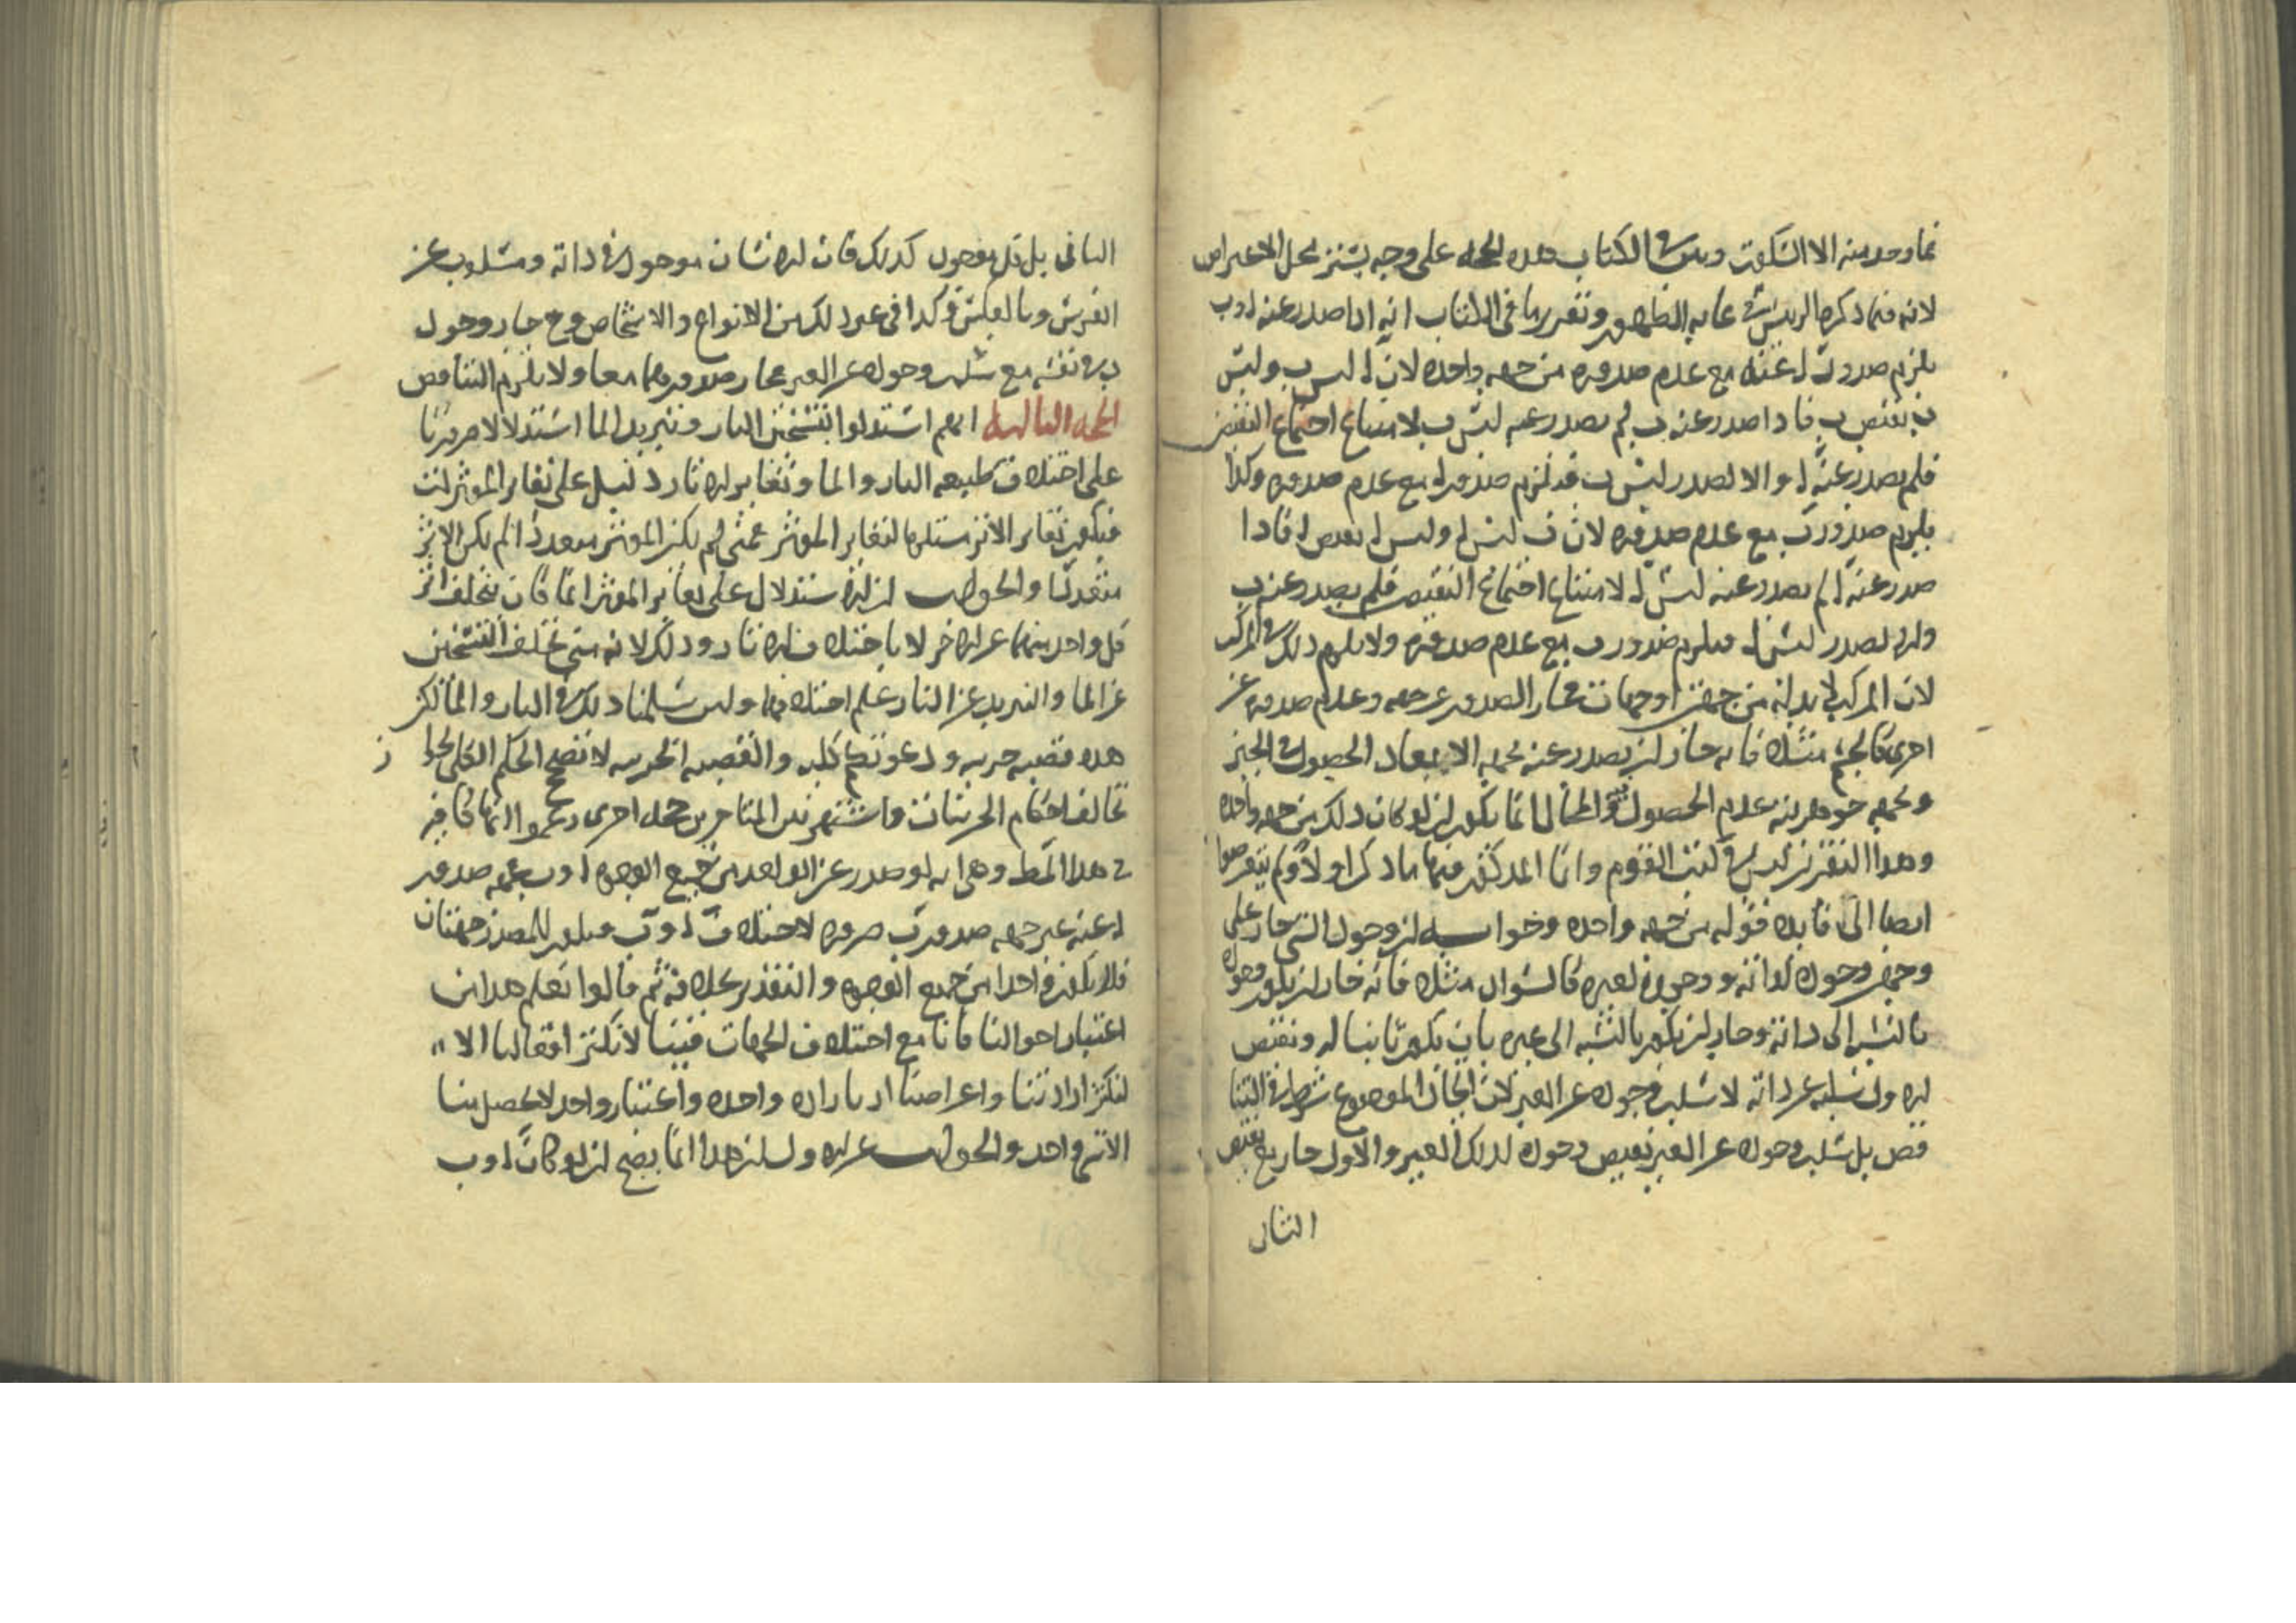 فما وجد منه الا السكوت وبين في الكتاب هذه الحجة على وجه يستنر محل الاعتراض
لانه فيما ذكره الرئيس في غاية الظهور وتقريرها في الكتاب انه اذا صدر عنه ا وب
يلزم صدور ا عنه مع عدم صدوره من جهة واحدة لان ا ليس ب وليس
ب نقيض ب فاذا صدر عنه ب لم يصدر عنه ليس ب لامتناع اجتماع النقيضين
فلم يصدر عنه ا والا لصدر ليس ب فيلزم صدور ا مع عدم صدوره وكذا
يلزم صدور ب مع عدم صدوره لان ب ليس ا وليس ا نقيض ا فاذا
صدر عنه ا لم يصدر عنه ليس ا لامتناع اجتماع النقيض فلم يصدر عنه ب
والا لصدر ليس ا فيلزم صدور ب مع عدم صدوره ولا يلزم ذلك في المركب
لان المركب لا بد له من جهتين او جهات فجاز الصدور عن جهة وعدم صدوره عن
اخرى كالجسم مثلا فانه جاز ان يصدر عنه بجهة الابعاد الحصول في الحيز
وبجهة جوهريته عدم الحصول فيه والمحال انما يكون ان لو كان ذلك من جهة واحدة
وهذا التقرير ليس في كتب القوم وانما المذكور فيها ما ذكر اولا ولم يتعرضوا
ايضا الى فائدة قوله من جهة واحدة وجوابه ان وجود الشي جاز على
وجهين وجوده لذاته ووجوده لغيره كالسواد مثلا فانه جاز ان يكون وجوده
بالنسبة الى ذاته وجاز ان يكون بالنسبة الى غيره بان يكون ثابتا له ونقيض
الاول سلبه عن ذاته لا سلب وجوده عن الغير لان اتحاد الموضوع شرط في التنا
قض بل سلب وجوده عن الغير نقيض وجوده لذلك الغير والاول جاز مع نقيض
الثاني
الثاني بل كل موجود كذلك فان الانسان موجود في ذاته ومسلوب عن
الفرس وبالعكس وكذا في غير ذلك من الانواع والاشخاص وح جاز وجود
ب في نفسه مع سلب وجوده عن الغير فجاز صدورهما معا ولا يلزم التناقض
الحجة الثالثة انهم استدلوا بتسخين النار وتبريد الما استدلالا ضروريا
على اختلاف طبيعة النار والما وتغاير الاثار دليل على تغاير المؤثرات
فيكون تغاير الاثر مستلزما لتغاير المؤثر فمتى لم يكن المؤثر متعددا لم يكن الاثر
متعددا والجواب ان الاستدلال على تغاير المؤثر انما كان بتخلف اثر
كل واحد منهما عن الاخر لا باختلاف الاثار وذلك لانه متى تخلف التسخين
عن الما والتبريد عن النار علم اختلافهما ولئن سلمنا ذلك في النار والما لكن
هذه قضية جزية ودعوتكم كلية والقضية الجزية لا تصحح الحكم الكلي لجواز
تخالف احكام الجزئيات واشتهر بين المتاخرين حجة اخرى زعموا انها كافية
في هذا المط وهي انه لو صدر عن الواحد من جميع الوجوه ا وب فجهة صدور
ا عنه غير جهة صدور ب ضرورة لاختلاف ا وب فيكون للمصدر جهتان
فلا يكون واحدا من جميع الوجوه والتقدير خلافه ثم قالوا نعلم هذا من
اعتبار احوالنا فانا مع اختلاف الجهات فينا لا تكثر افعالنا الا
لتكثر ارادتنا واغراضنا اذ بارادة واحدة واعتبار واحد لا يحصل منا
الا شي واحد والجواب عن الاول ان هذا انما يصح ان لو كان ا وب